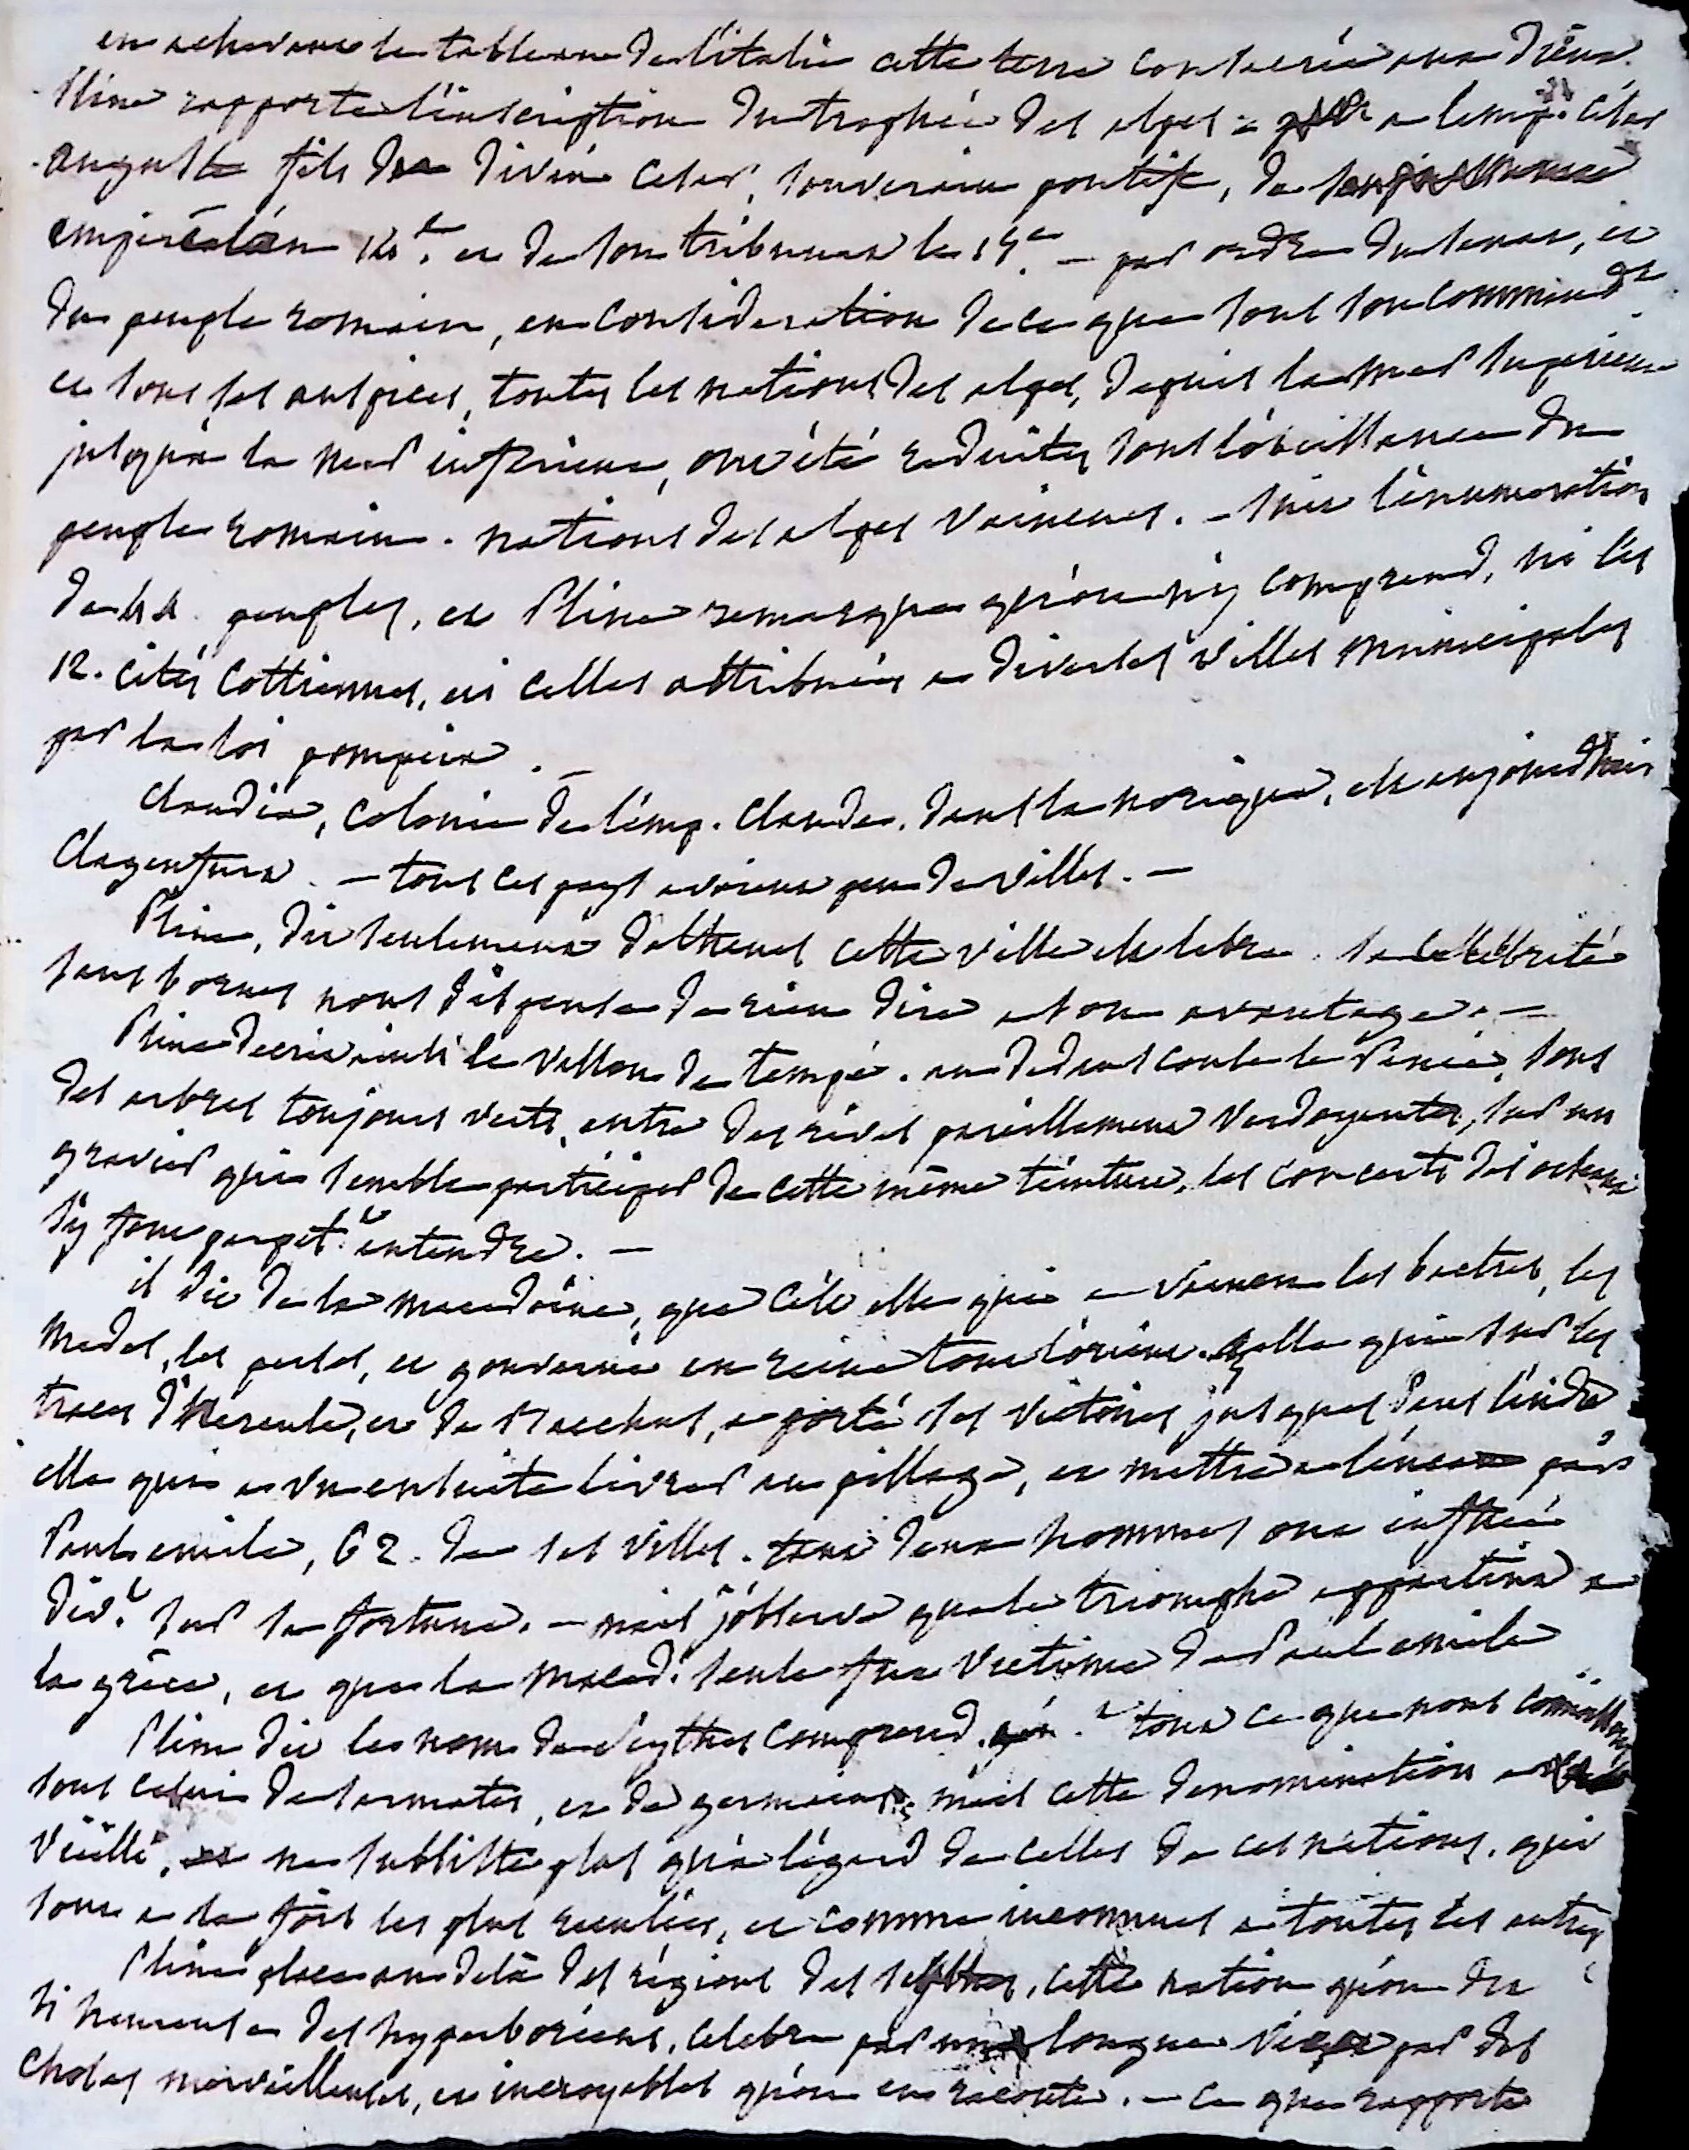 en achevant le tableau de l'italie cette terre consacrée aux dieux.
Pline rapporte l'inscription du trophée des alpes = a l'emp. César
auguste fils du divin César, souverain pontife, de
empire l'an 14.e et de son tribunat le 17.e — par ordre du senat, et
du peuple romain, en consideration de ce que sous son commandt
et sous ses auspices, toutes les nations des alpes, depuis la mer superieure
jusqu'à la mer inferieure, ont été reduites sous l'obeissance du
peuple romain. nations des alpes vaincues. — suit l'énumeration
de 44. peuples, et Pline remarque qu'on n'y comprend, ni les
12. cités Cottiennes, ni celles attribuées a diverses villes municipales
par la loi pompeia. —
Claudia, colonie de l'emp. Claude, dans la norique, est aujourdhui
Clagenfurt. — tous ces pays avoient peu de villes. —
Pline, dit seulement d'athenes cette ville celebre. sa celebrité
sans bornes nous dispense de rien dire a son avantage. —
Pline decrit ainsi le vallon de tempé. au dedans coule le Penée, sous
des arbres toujours verts, entre des rives pareillement verdoyantes, sur un
gravier qui semble participer de cette même teinture, les concerts des oiseaux
s'y font perpet.t entendre. —
il dit de la macedoine, que c'est elle qui a vaincu les bactres, les
medes, les perses, et gouverné en reine tout l'orient. elle qui sur les
traces d'hercule, et de Bacchus, a porté ses victoires jusques dans l'inde
elle qui a vu ensuite livrer au pillage, et mettre a l'encan par
Paul emile, 62. de ses villes. tant deux hommes ont influé
div.t sur sa fortune. — mais j'observe que le triomphe appartint a
la grèce, et que la maced. seule fut victime de Paul emile
Pline dit le nom de Scythes comprend tout ce que nous connoissons
sous celui de sarmates, et de germains; mais cette denomination a
vieilli, ne subsiste plus qu'a l'égard de celles de ces nations, qui
sont a la fois les plus reculées, et comme inconnues a toutes les autres
Pline place au delà des régions des scythes, cette nation qu'on dit
si heureuse des hyperboréens, celebre par une longue vie et par des
choses merveilleuses, et incroyables qu'on en raconte. — ce que rapporte